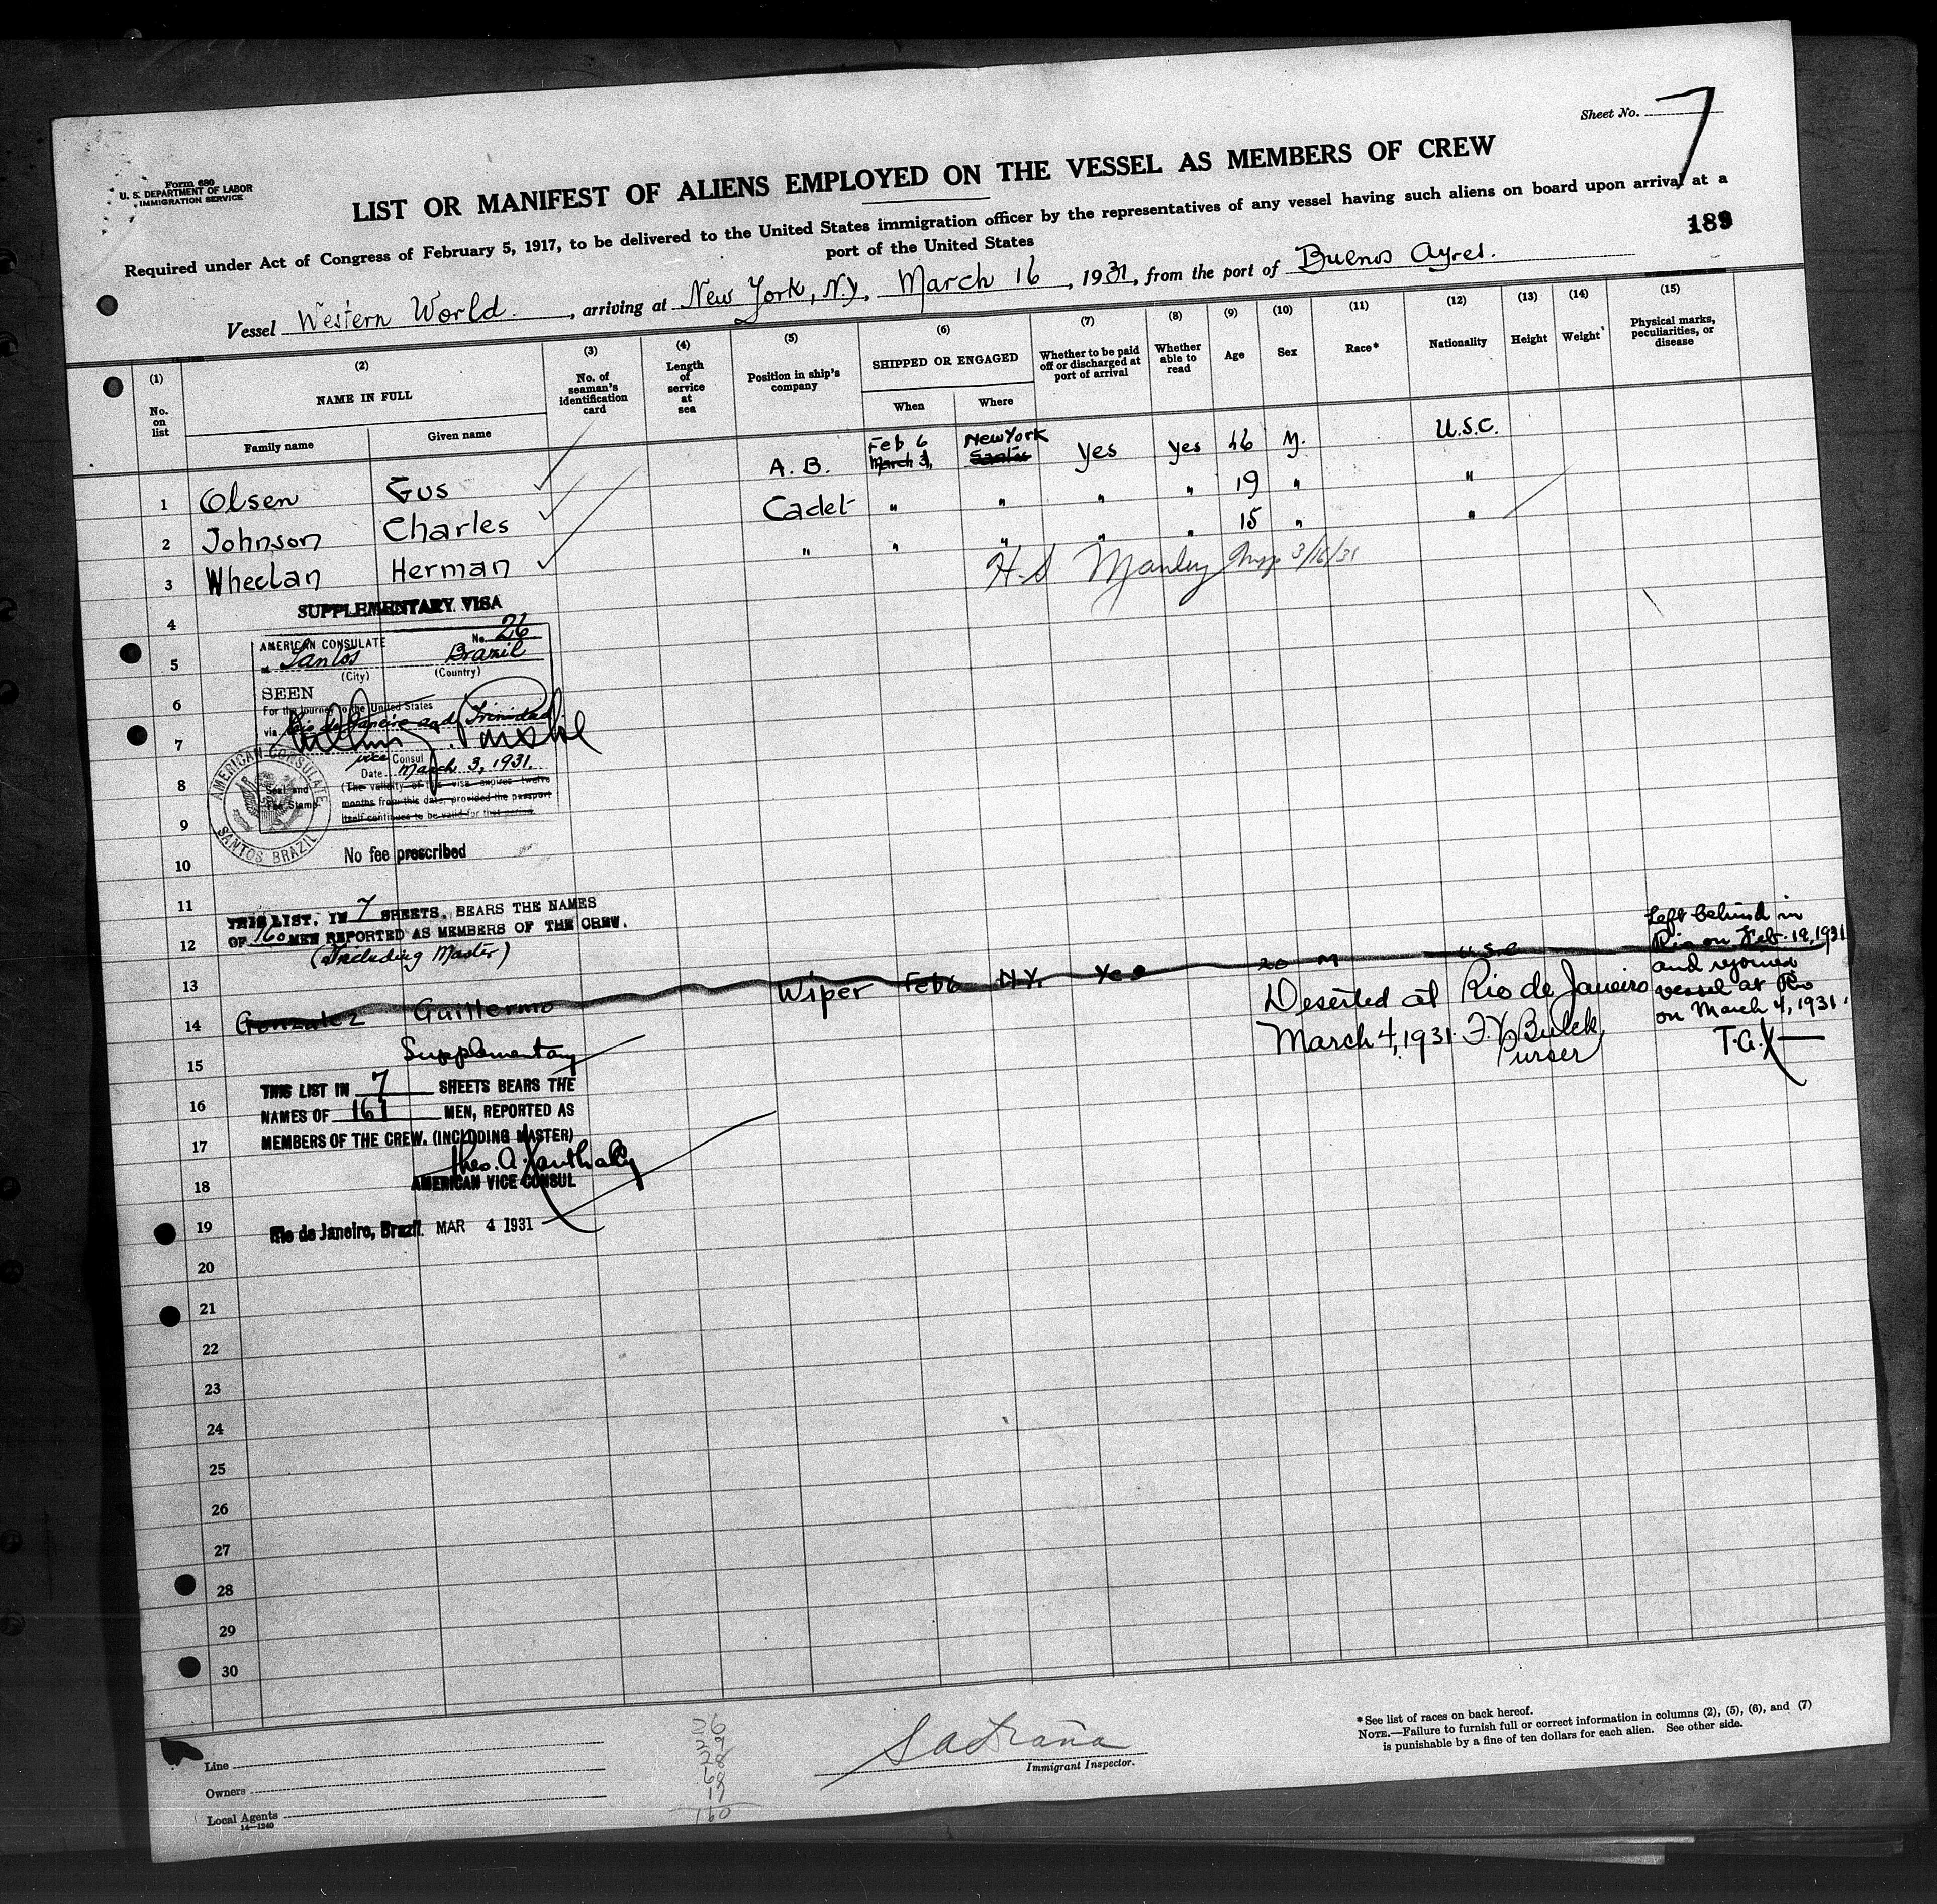 Sheet No. 7
Form 680
U. S. DEPARTMENT OF LABOR
IMMIGRATION SERVICE
LIST OR MANIFEST OF ALIENS EMPLOYED ON THE VESSEL AS MEMBERS OF CREW
Required under Act of Congress of February 5, 1917, to be delivered to the United States immigration officer by the representatives of any vessel having such aliens on board upon arrival at a
port of the United States
189
Vessel Western World. , arriving at New York, N.Y., March 16 , 1931, from the port of Buenos Ayres.
(1) (2) (3) (4) (5) (6) (7) (8) (9) (10) (11) (12) (13) (14) (15)
No. on list
NAME IN FULL
Family name
Given name
No. of seaman's identification card
Length of service at sea
Position in ship's company
SHIPPED OR ENGAGED
When
Where
Whether to be paid off or discharged at port of arrival
Whether able to read
Age
Sex
Race*
Nationality
Height
Weight
Physical marks, peculiarities, or disease
March 3, Santos
1 Olsen Gus A. B. Feb 6 New York Yes Yes 46 M. U.S.C.
2 Johnson Charles Cadet " " " " 19 " "
3 Wheelan Herman " " " " " 15 " "
H. S. Manley Insp 3/16/31
4
SUPPLEMENTARY VISA
5
AMERICAN CONSULATE No. 26
at Santos Brazil
(City) (Country)
6
SEEN
For the journey to the United States
via Rio de Janeiro and Trinidad
7
vice Consul
Date March 3, 1931.
8
(The validity of this visa expires twelve
months from this date, provided the passport
itself continues to be valid for that period.
Seal and
Fee Stamp
AMERICAN CONSULATE
SANTOS BRAZIL
9
No fee prescribed
10
11
THIS LIST, IN 7 SHEETS, BEARS THE NAMES
12
OF 160 MEN REPORTED AS MEMBERS OF THE CREW.
(Including Master)
13
14 Gonzalez Guillermo Wiper Feb 6 N.Y. Yes 20 M U.S.C
Left behind in
Rio on Feb. 19, 1931
and rejoined
vessel at Rio
on March 4, 1931.
T.A.X
Deserted at Rio de Janeiro
March 4, 1931. Purser
15
Supplementary
16
THIS LIST IN 7 SHEETS BEARS THE
NAMES OF 161 MEN, REPORTED AS
17
MEMBERS OF THE CREW. (INCLUDING MASTER)
Theo. A. Xanthaky
18
AMERICAN VICE CONSUL
19
Rio de Janeiro, Brazil. MAR 4 1931
20
21
22
23
24
25
26
27
28
29
30
Line
Owners
Local Agents
14—1240
28
17
160
Immigrant Inspector.
*See list of races on back hereof.
NOTE.—Failure to furnish full or correct information in columns (2), (5), (6), and (7)
is punishable by a fine of ten dollars for each alien. See other side.